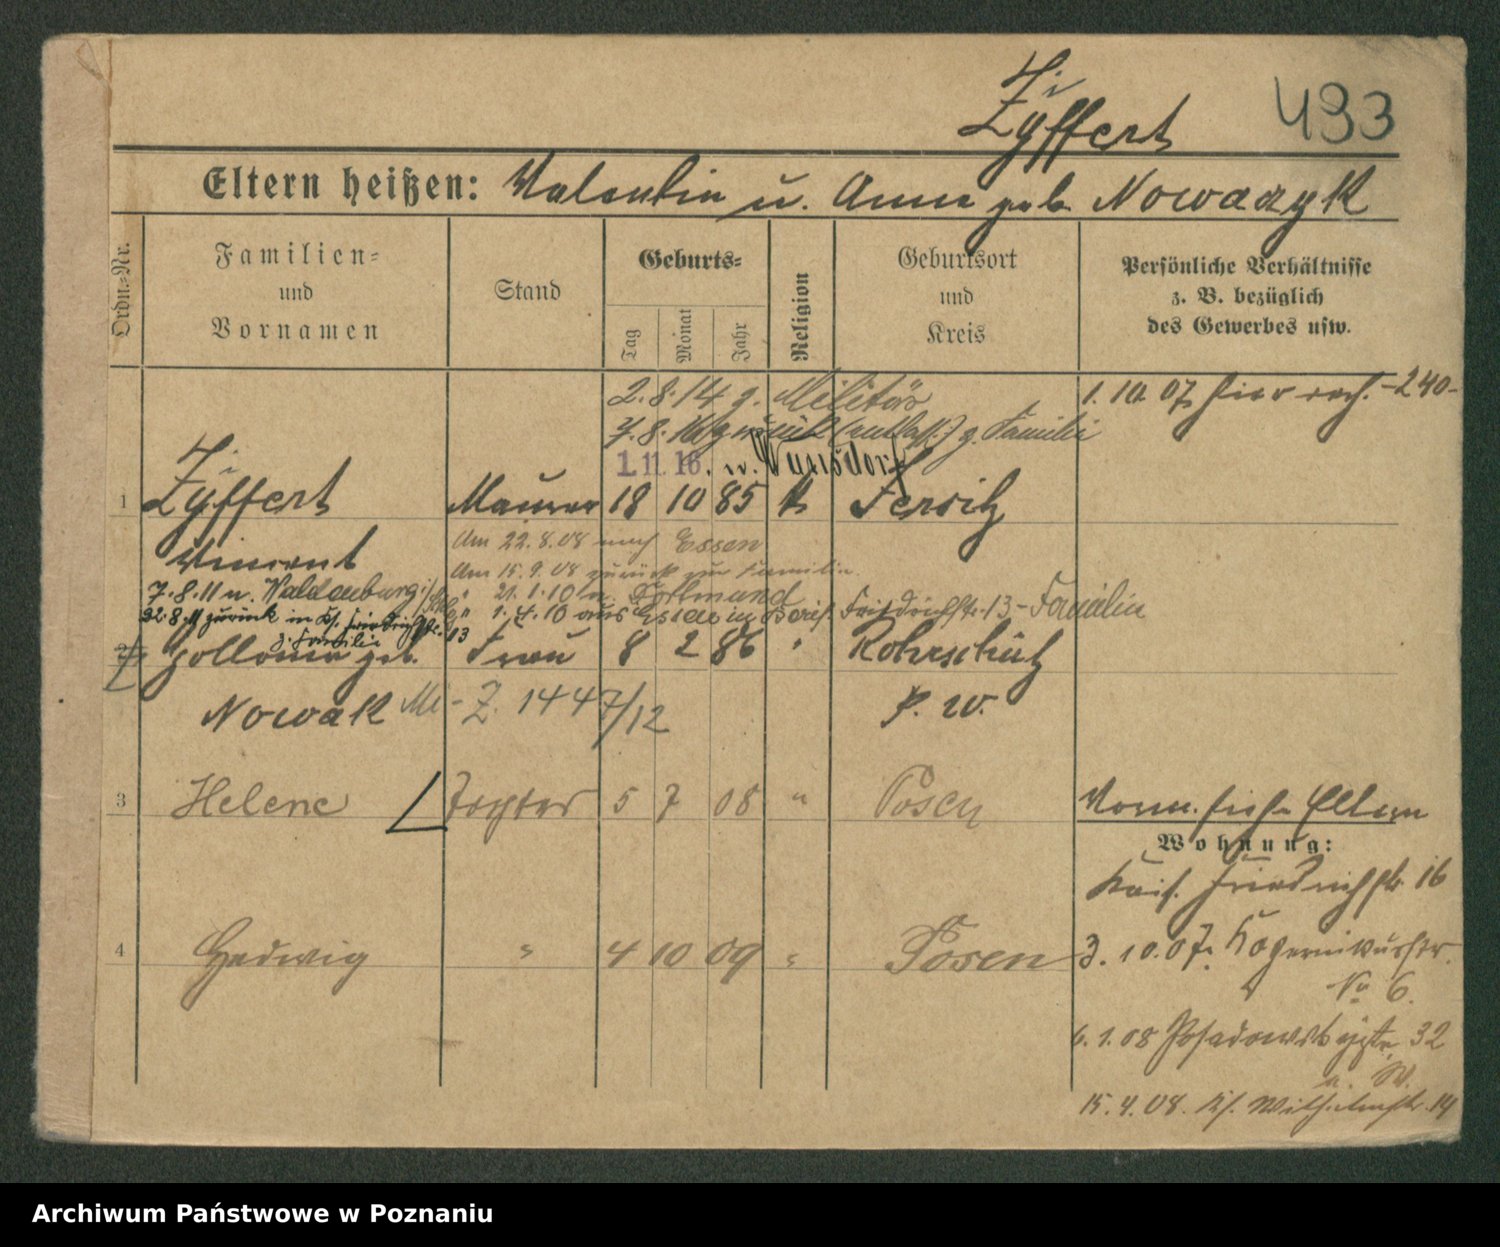 Zyffert 493
Eltern heißen: Valentin u. Anna geb. Nowaczyk
Ordn.-Nr.
Familien-
und
Vornamen
Stand
Geburts-
Tag
Monat
Jahr
Religion
Geburtsort
und
Kreis
Persönliche Verhältnisse
z. B. bezüglich
des Gewerbes usw.
2.8.14 z. Militär
1.10.07 hier -240-
7.8.16 zurück (entlass.) z. Familie
1.11.16. n. Wunsdorf
1 Zyffert Maurer 18 10 85 k Jersitz
Vincent
Am 22.8.08 nach Essen
Am 15.9.08 zurück zur Familie
7.8.11 n. Waldenburg
" 21.1.10 n. Dortmund
8.11 zurück in Ks. Friedrichstr. 13
z. Familie
" 1.4.10 aus Essen in Friedrichstr. 13 - Familie
2 geb. Frau 8 2 86 " Rohrschütz
Nowak
P. W.
Z. 1447/12
3 Helene Tochter 5 7 08 " Posen
Vorm. siehe Eltern
Wohnung:
Kais. Friedrichstr. 16
4 Hedwig " 4 10 09 " Posen
3.10.07.
No 6.
6.1.08 32
15.4.08. Ks. Wilhelmstr. 14
Archiwum Państwowe w Poznaniu